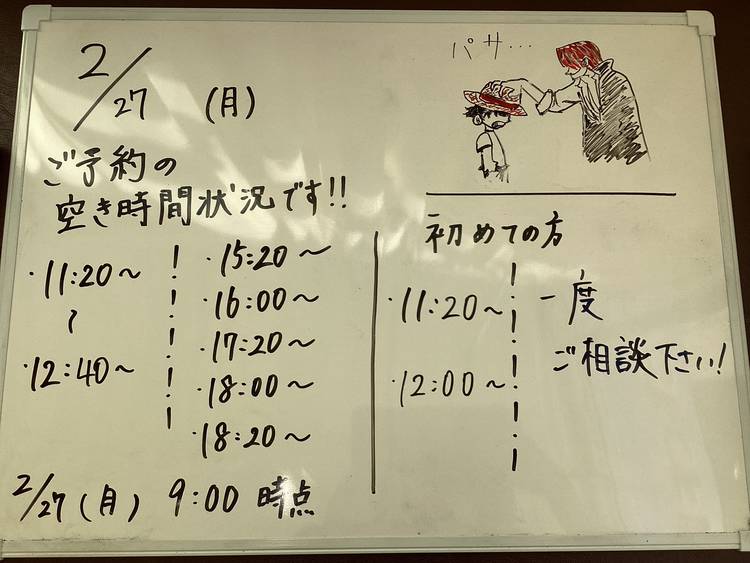 2/27 (月)
パサ…
ご予約の
空き時間状況です!!
・11:20〜
〜
・12:40〜
・15:20〜
・16:00〜
・17:20〜
・18:00〜
・18:20〜
初めての方
・11:20〜
・12:00〜
一度
ご相談下さい!
2/27(月) 9:00 時点